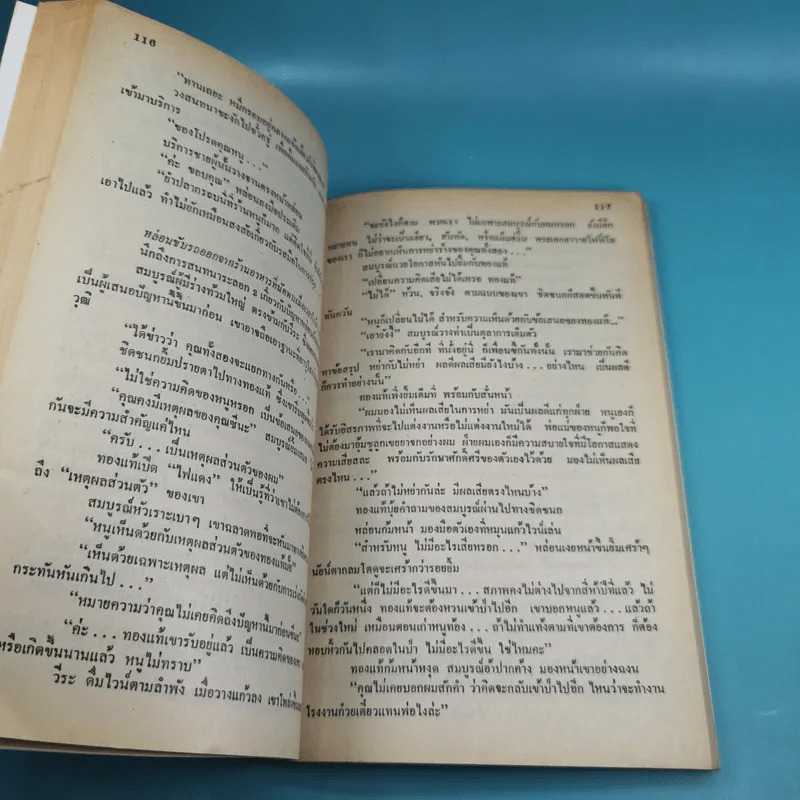 116
“ทานเถอะ หมี่กรอบอยู่
วงสนทนาชะงักไปชั่วครู่
เข้ามาบริการ
“ของโปรดคุณหนู...”
บริการชายผู้นั้นวางจานตรงหน้าหล่อน
“ค่ะ ขอบคุณ” หล่อนลงมือประเดิม
“ยำปลากรอบนี่ที่ร้านหนูก็มาก แต่
เอาไปแล้ว ทำไมยักเหมือนสงสัยเกี่ยวกับ
หล่อนขับรถออกจากร้านอาหาร
นึกถึงการสนทนาระลอก 2 เกี่ยวกับปัญหา
สมบูรณ์ผู้มีร่างท้วมใหญ่ ตรงข้ามกับวีระ
เป็นผู้เสนอปัญหานี้ขึ้นมาก่อน เขาอาจถือเอาฐานะ
วุฒิ
“ได้ข่าวว่า คุณทั้งสองจะแยกทางกันหรือ...”
ชิดชนกยิ้มปรายตาไปทางทองแท้
“ไม่ใช่ความคิดของหนูหรอก เป็นข้อเสนอของ
“คุณคงมีเหตุผลของคุณซีนะ” สมบูรณ์
กันจะมีความสำคัญแค่ไหน
“ครับ... เป็นเหตุผลส่วนตัวของผม”
ทองแท้เปิด “ไฟแดง” ให้เป็นรู้ที่ว่าเขาไม่ต้อง
ถึง “เหตุผลส่วนตัว” ของเขา
สมบูรณ์หัวเราะเบาๆ เขาฉลาดพอที่จะหันมาทาง
“หนูเห็นด้วยกับเหตุผลส่วนตัวของทองแท้มั้ย”
“เห็นด้วยเฉพาะเหตุผล แต่ไม่เห็นด้วยกับการ
กระทันหันเกินไป...”
“หมายความว่าคุณไม่เคยคิดถึงปัญหานี้มาก่อนซินะ”
“ค่ะ... ทองแท้เขารับอยู่แล้ว เป็นความคิดของเขา
หรือเกิดขึ้นนานแล้ว หนูไม่ทราบ”
วีระ ดื่มไวน์ตามลำพัง เมื่อวางแก้วลง เขา
117
“ขอยังไงก็ตาม พวกเรา ไม่เฉพาะสมบูรณ์กับผมหรอก ยังมีอีก
หลายคน ไม่ว่าจะเป็นเจียว, สังกัด,
ของเรา ก็ไม่อยากเห็นการหย่าร้างของคุณทั้งสอง...”
สมบูรณ์ฉวยโอกาสหันไปยิ้มกับทองแท้
“เปลี่ยนความคิดเสียไม่ได้เหรอ ทองแท้”
“ไม่ได้” ห้วน, จริงจัง ตามแบบของเขา ชิดชนกก็สอดขึ้นทันที
ทันควัน
“หนูก็เปลี่ยนไม่ได้ สำหรับความเห็นด้วยกับข้อเสนอของทองแท้...”
“เอายังงี้” สมบูรณ์วางท่าเป็นตุลาการเต็มตัว
“เรามาคิดกันอีกที ที่นั่งอยู่นี่ ก็เพื่อนซี้กันทั้งนั้น เรามาช่วยกันคิด
หาข้อสรุป หย่ากับไม่หย่า ผลดีผลเสียมียังไงบ้าง... อย่างไหน เป็นผลดี
ก็ควรทำอย่างนั้น”
ทองแท้เพิ่งยิ้มเต็มที่ พร้อมกับสั่นหน้า
“ผมมองไม่เห็นผลเสียในการหย่า มันเป็นผลดีแก่ทุกฝ่าย หนูเองก็
ได้รับอิสรภาพที่จะไปแต่งงานหรือไม่แต่งงานใหม่ได้ พ่อแม่ของหนูก็พอใจที่
ไม่ต้องมาอุ้มชูลูกเขยอาจกอย่างผม ฝ่ายผมเองก็มีความสบายใจที่มีโอกาสแสดง
ความเสียสละ พร้อมกับรักษาศักดิ์ศรีของตัวเองไว้ด้วย มองไม่เห็นผลเสีย
ตรงไหน...”
“แล้วถ้าไม่หย่ากันล่ะ มีผลเสียตรงไหนบ้าง”
ทองแท้บุ้ยคำถามของสมบูรณ์ผ่านไปทางชิดชนก
หล่อนก้มหน้า มองมือตัวเองที่หมุนแก้วไวน์เล่น
“สำหรับหนู ไม่มีอะไรเสียหรอก...” หล่อนเงยหน้าขึ้นยิ้มเศร้าๆ
นัยน์ตากลมโตดูจะเศร้ากว่ารอยยิ้ม
“แต่ก็ไม่มีอะไรดีขึ้นมา... สภาพคงไม่ต่างไปจากสี่ห้าปีที่แล้ว ไม่
วันใดก็วันหนึ่ง ทองแท้จะต้องหวนเข้าป่าไปอีก เขาบอกหนูแล้ว... แล้วถ้า
ในช่วงใหม่ เหมือนตอนเก่าหนูท้อง... ถ้าไม่ทำแท้งตามที่เขาต้องการ ก็ต้อง
หอบหิ้วกันไปคลอดในป่า ไม่มีอะไรดีขึ้น ใช่ไหมคะ”
ทองแท้ก้มหน้าหงุด สมบูรณ์อ้าปากค้าง มองหน้าเขาอย่างฉงน
“คุณไม่เคยบอกผมสักคำ ว่าคิดจะกลับเข้าป่าไปอีก ไหนว่าจะทำงาน
โรงงานก๋วยเตี๋ยวแทนพ่อไงล่ะ”